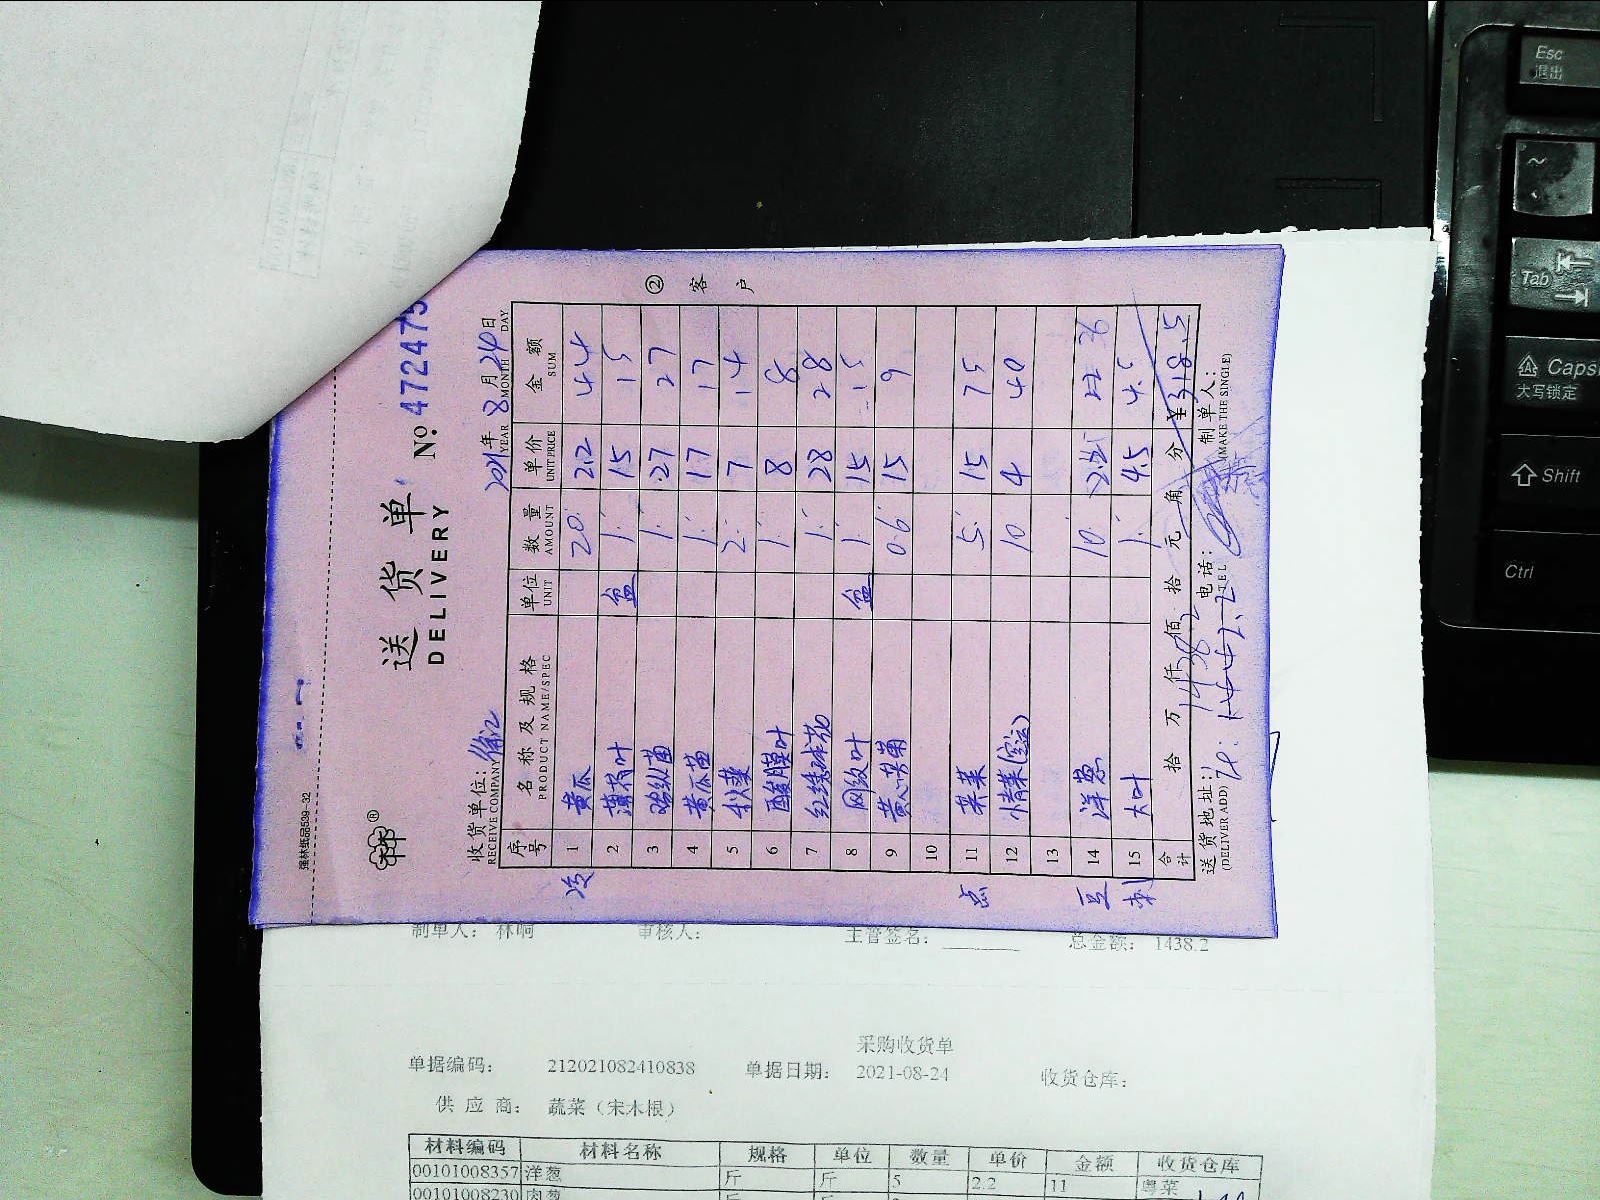 强林纸品539-32
送货单
DELIVERY
No. 472475
收货单位：徐汇
RECEIVE COMPANY
2021年8月24日
YEAR MONTH DAY
序号 名称及规格 单位 数量 单价 金额
PRODUCT NAME/SPEC UNIT AMOUNT UNIT PRICE SUM
1 黄瓜 20 2.2 44
2 薄荷叶 盆 1 15 15
3 1 27 27
4 黄瓜苗 1 17 17
5 秋葵 2 7 14
6 酸膜叶 1 8 8
7 红绣球花 1 28 28
8 网纹叶 盆 1 15 15
9 0.6 15 9
10
点 11 5 15 75
12 10 4 40
13
14 洋葱 10 22
15 大叶 1 4.5 4.5
合计 拾 万 仟 佰 拾 元 角 分 ¥318.5
1438.2
送货地址： 电话： 制单人：
(DELIVER ADD) TEL (MAKE THE SINGLE)
1442.2
② 客户
制单人： 林响 审核人： 主管签名： 总金额： 1438.2
采购收货单
单据编码： 212021082410838 单据日期： 2021-08-24 收货仓库：
供应商： 蔬菜（宋木根）
材料编码 材料名称 规格 单位 数量 单价 金额 收货仓库
00101008357 洋葱 斤 斤 5 2.2 11 粤菜
00101008230 肉葱
Esc
退出
~
Tab
Caps
大写锁定
Shift
Ctrl